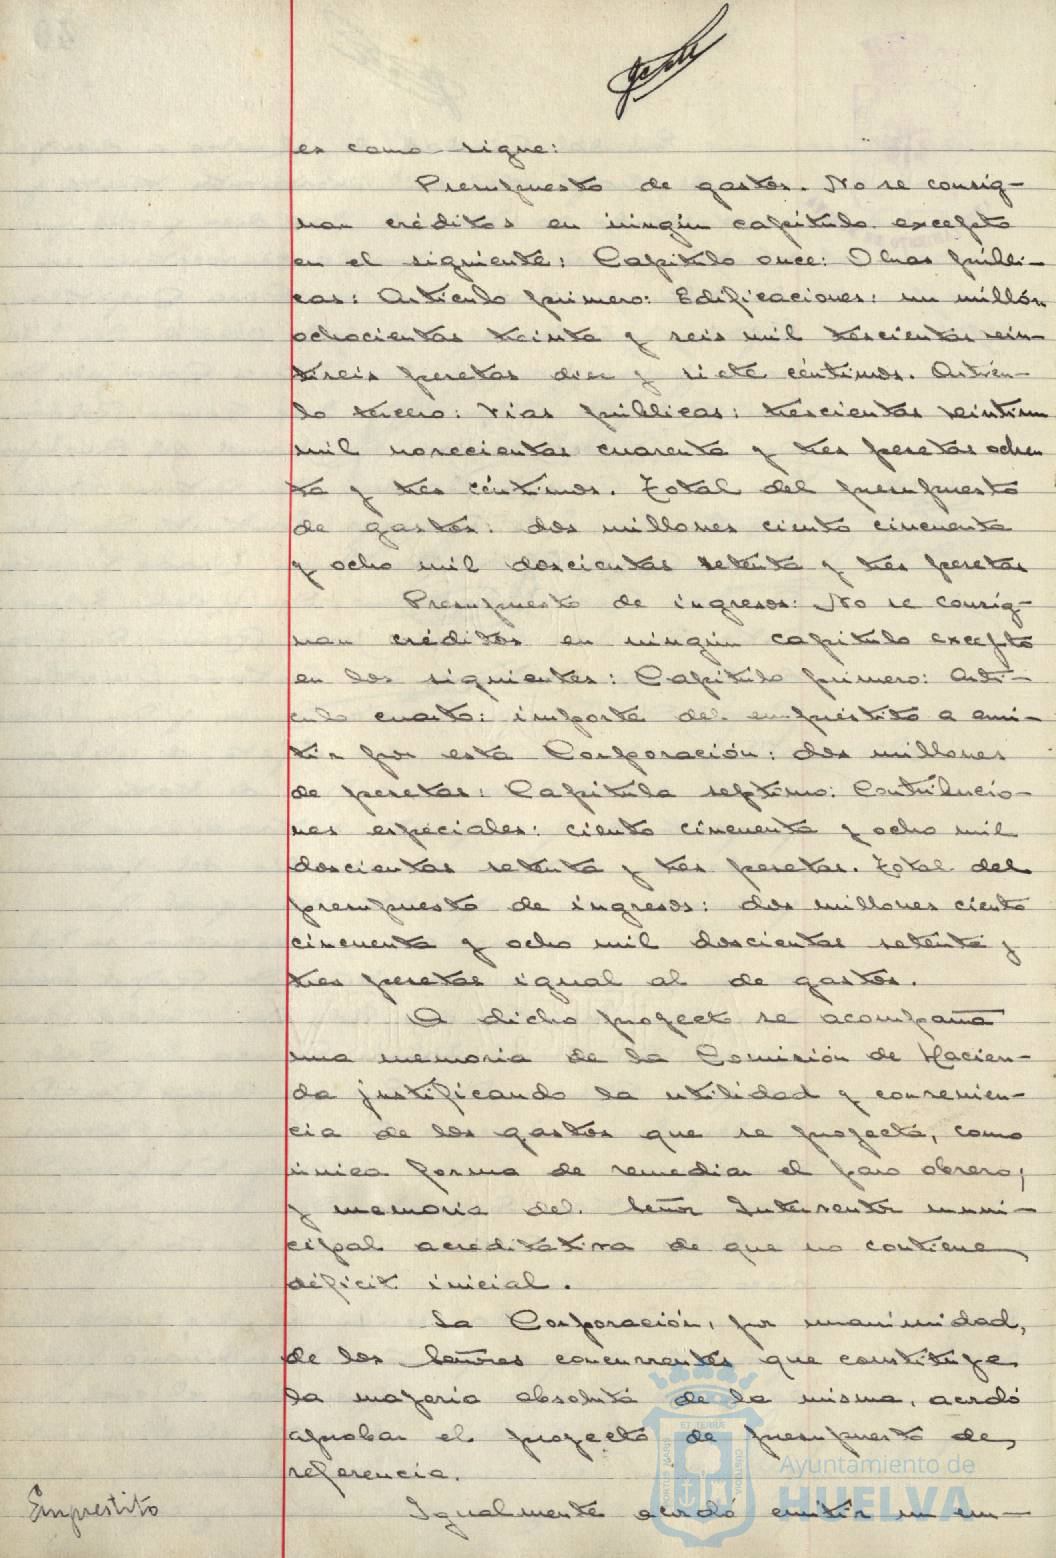 es como sigue:
Presupuesto de gastos. No se consig-
nan créditos en ningún capítulo excepto
en el siguiente: Capítulo once: Obras públi-
cas: Artículo primero: Edificaciones: un millón
ochocientas treinta y seis mil trescientas vein-
tiseis pesetas diez y siete céntimos. Artícu-
lo tercero: Vías públicas: trescientas veintiun
mil novecientas cuarenta y tres pesetas ochen
ta y tres céntimos. Total del presupuesto
de gastos: dos millones ciento cincuenta
y ocho mil doscientas setenta y tres pesetas
Presupuesto de ingresos: No se consig-
nan créditos en ningún capítulo excepto
en los siguientes: Capítulo primero: Artí-
culo cuarto: importe del empréstito a emi-
tir por esta Corporación: dos millones
de pesetas: Capítulo septimo: Contribucio-
nes especiales: ciento cincuenta y ocho mil
doscientas setenta y tres pesetas. Total del
presupuesto de ingresos: dos millones ciento
cincuenta y ocho mil doscientas setenta y
tres pesetas igual al de gastos.
A dicho proyecto se acompaña
una memoria de la Comisión de Hacien-
da justificando la utilidad y convenien-
cia de los gastos que se proyecta, como
única forma de remediar el paro obrero,
y memoria del Señor Interventor muni-
cipal acreditativa de que no contiene
déficit inicial.
La Corporación, por unanimidad,
de los Señores concurrentes que constituye
la mayoría absoluta de la misma, acordó
aprobar el proyecto de presupuesto de
referencia.
Empréstito
Igualmente acordó emitir un em-
Ayuntamiento de
HUELVA